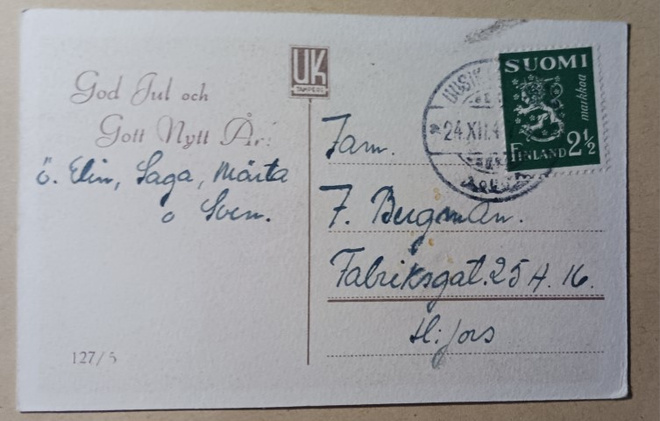 God Jul och
Gott Nytt År!
ö. Elin, Saga, Märta
o Sven.
127/5
UK
TAMPERE
SUOMI
markkaa
FINLAND 2½
24.XII.4
Fam.
F. Bergman.
Fabriksgat. 25 A. 16.
H:fors